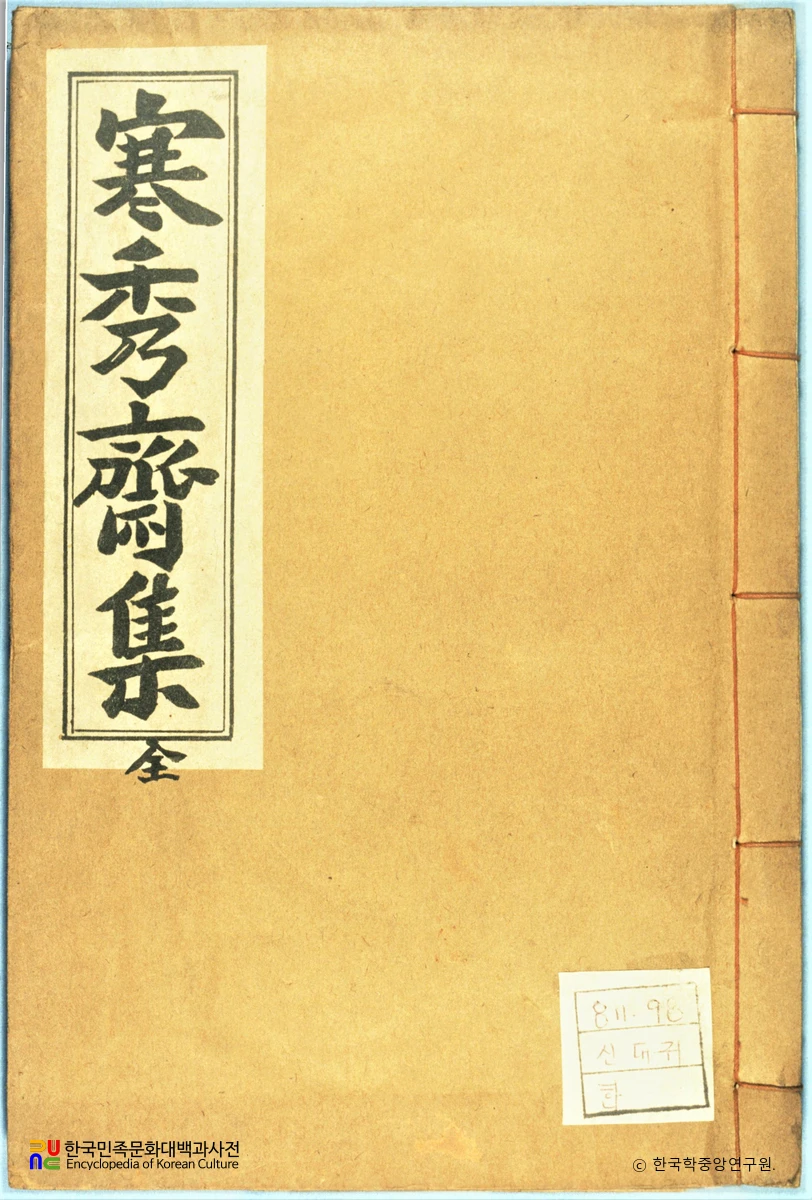 寒秀齋集
全
811.98
신대규
한
한국민족문화대백과사전
Encyclopedia of Korean Culture
ⓒ 한국학중앙연구원.